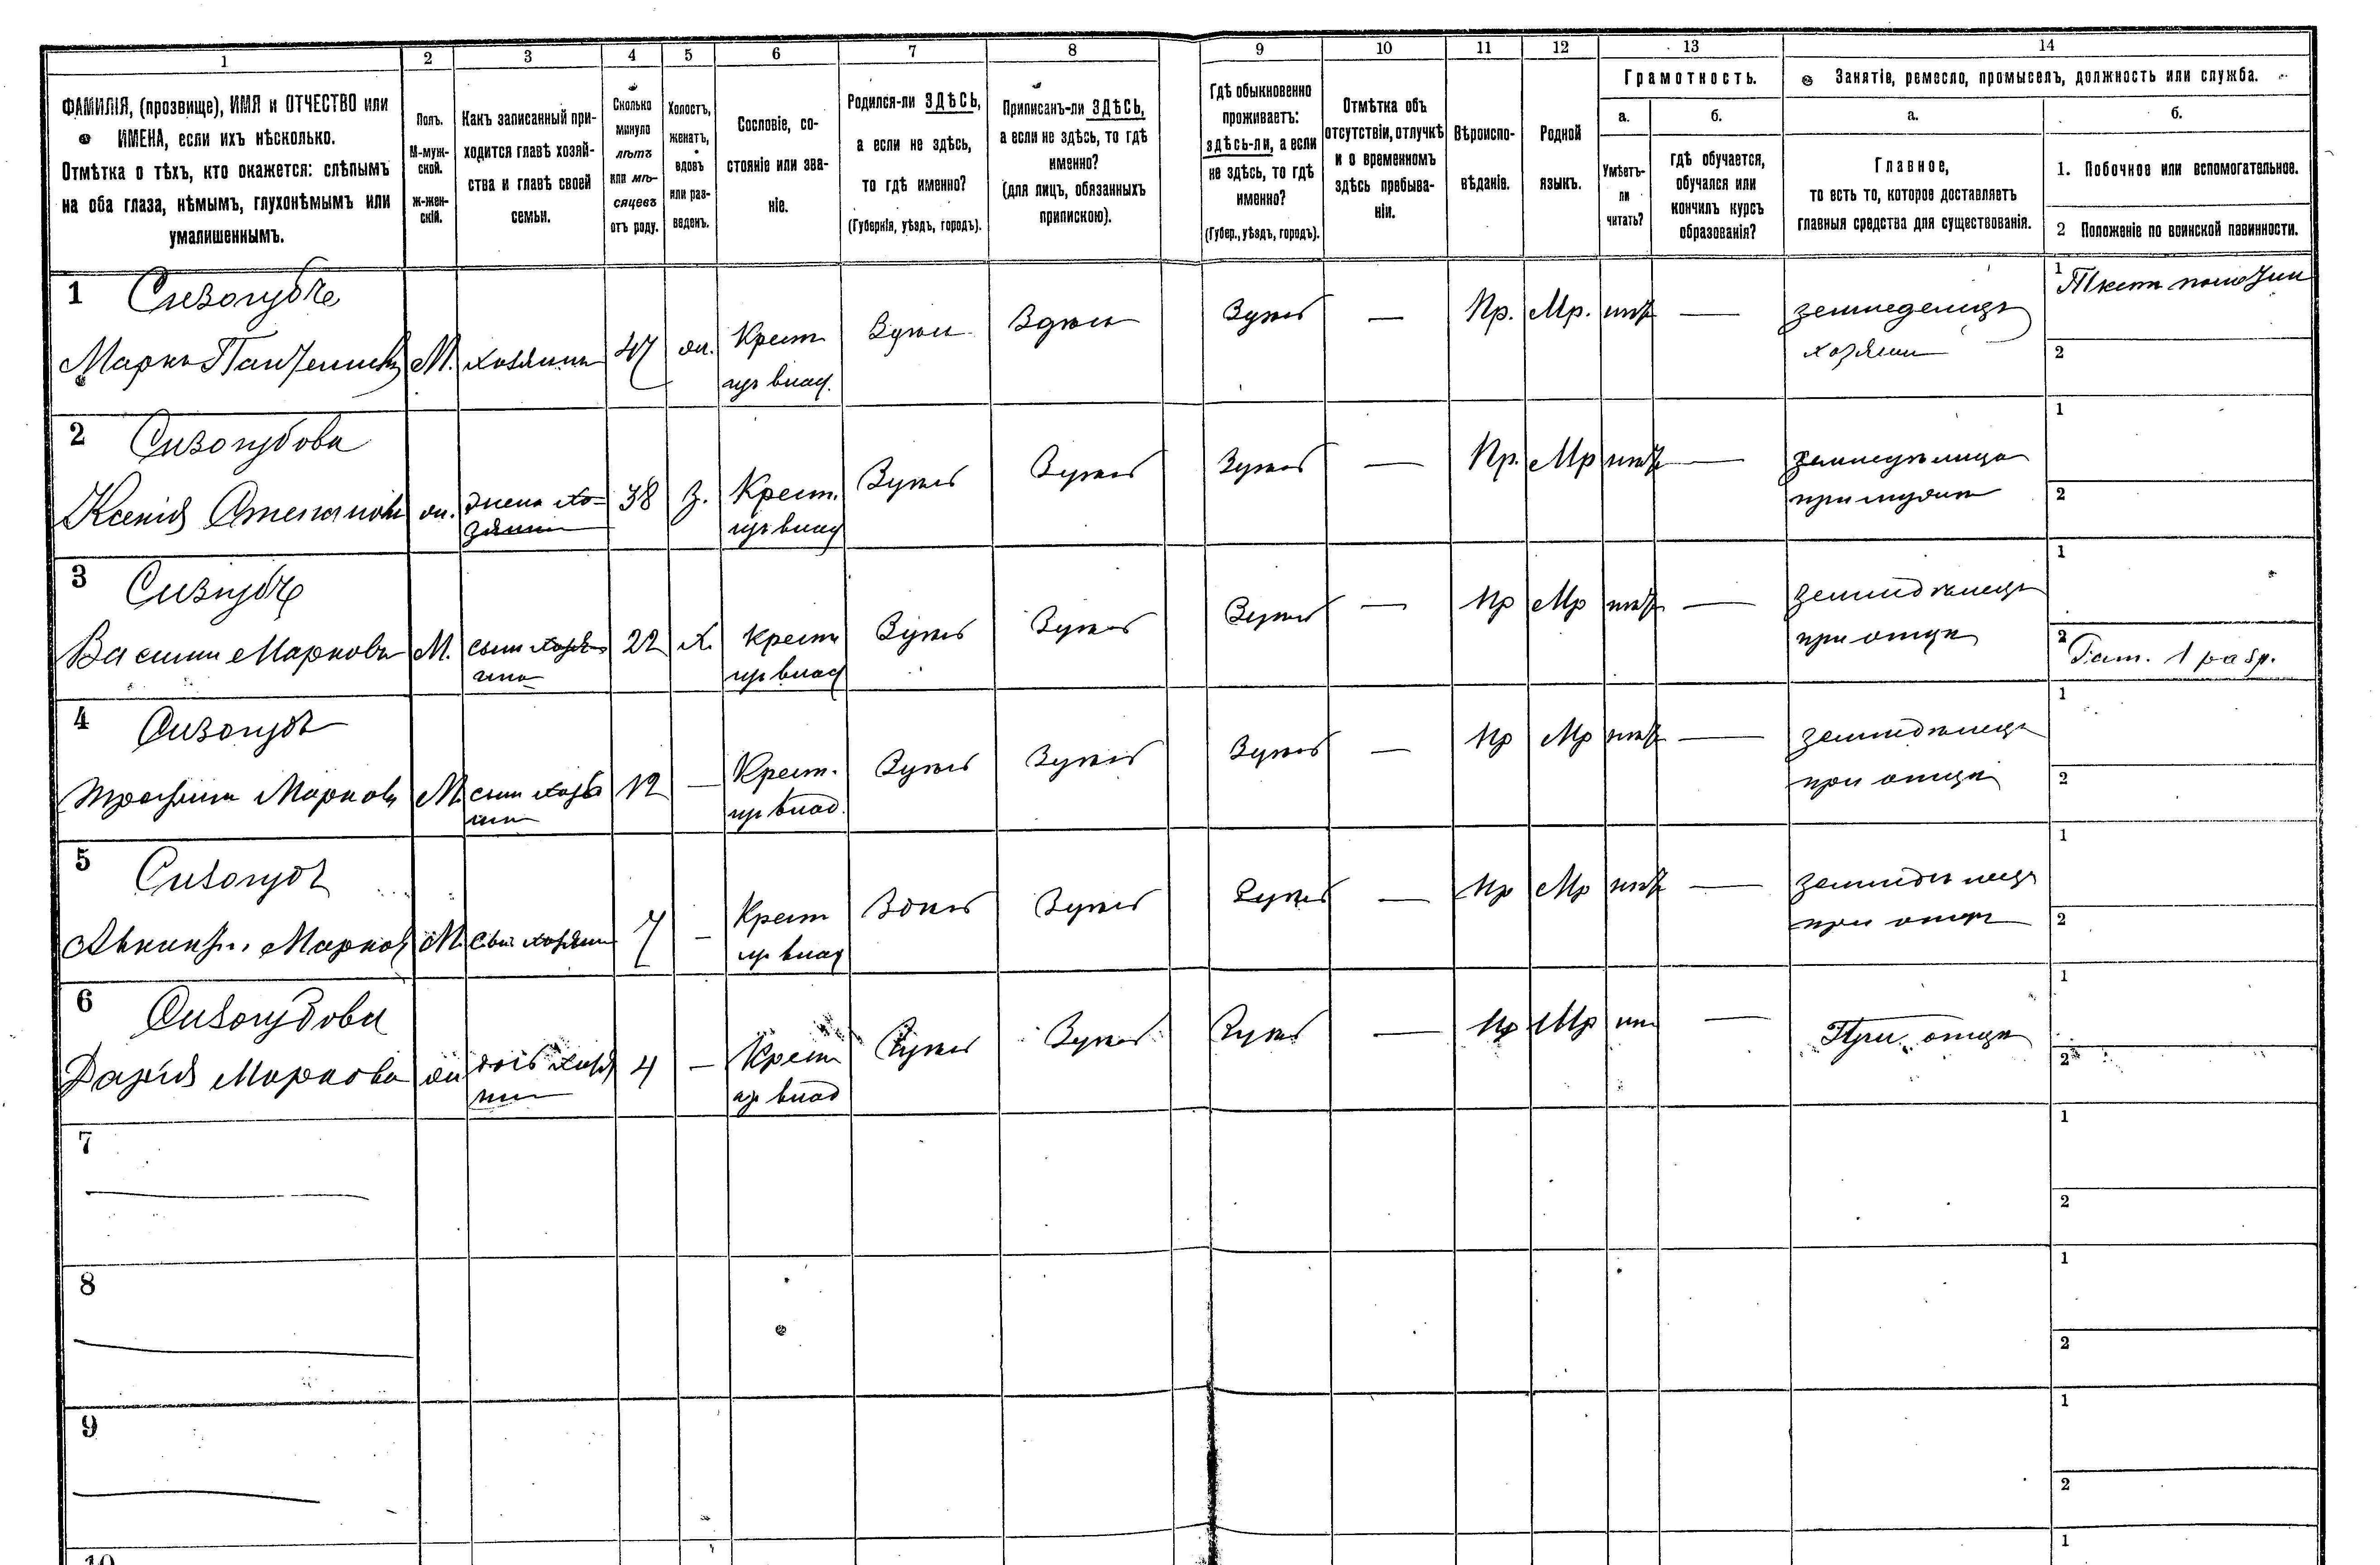 1 2 3 4 5 6 7 8 9 10 11 12 13 14
ФАМИЛІЯ, (прозвище), ИМЯ и ОТЧЕСТВО или
ИМЕНА, если ихъ нѣсколько.
Отмѣтка о тѣхъ, кто окажется: слѣпымъ
на оба глаза, нѣмымъ, глухонѣмымъ или
умалишеннымъ.
Полъ.
М-муж-
ской.
ж-жен-
скій.
Какъ записанный при-
ходится главѣ хозяй-
ства и главѣ своей
семьи.
Сколько
минуло
лѣтъ
или мѣ-
сяцевъ
отъ роду.
Холостъ,
женатъ,
вдовъ
или раз-
веденъ.
Сословіе, со-
стояніе или зва-
ніе.
Родился-ли ЗДѢСЬ,
а если не здѣсь,
то гдѣ именно?
(Губернія, уѣздъ, городъ).
Приписанъ-ли ЗДѢСЬ,
а если не здѣсь, то гдѣ
именно?
(для лицъ, обязанныхъ
припискою).
Гдѣ обыкновенно
проживаетъ:
здѣсь-ли, а если
не здѣсь, то гдѣ
именно?
(Губер., уѣздъ, городъ).
Отмѣтка объ
отсутствіи, отлучкѣ
и о временномъ
здѣсь пребыва-
ніи.
Вѣроиспо-
вѣданіе.
Родной
языкъ.
Грамотность.
а.
Умѣетъ-
ли
читать?
б.
гдѣ обучается,
обучался или
кончилъ курсъ
образованія?
Занятіе, ремесло, промыселъ, должность или служба.
а.
Главное,
то есть то, которое доставляетъ
главныя средства для существованія.
б.
1. Побочное или вспомогательное.
2 Положеніе по воинской павинности.
1 Сизогубъ
Марко М. хозяинъ 47 ж. Крест Здѣсь Здѣсь Здѣсь — Пр. Мр. нѣтъ — земледелецъ
хозяинъ
1
2
2 Сизогубова
Ксенія Степанова ж. жена хо-
зяина 38 З. Крест. Здѣсь Здѣсь Здѣсь — Пр. Мр нѣтъ — земледѣлица
при мужѣ
1
2
3 Сизогубъ
Василий Марковъ М. сынъ хозя-
ина 22 Х. крест Здѣсь Здѣсь Здѣсь — Пр Мр нѣтъ — земледѣлецъ
при отцѣ
1
2 Рат. 1 разр.
4 Сизогубъ
Трофимъ Марковъ М. сынъ хозя
ина 12 — Крест. Здѣсь Здѣсь Здѣсь — Пр Мр нѣтъ — земледѣлецъ
при отцѣ
1
2
5 Сизогубъ
Марков М. сынъ хозяина 7 — Крест Здѣсь Здѣсь Здѣсь — Пр Мр нѣтъ — земледѣлецъ
при отцѣ
1
2
6 Сизогубова
Дарія Маркова ж дочь хозя
ина 4 — Крест Здѣсь Здѣсь Здѣсь — Пр Мр — При отцѣ
1
2
7
1
2
8
1
2
9
1
2
10
1